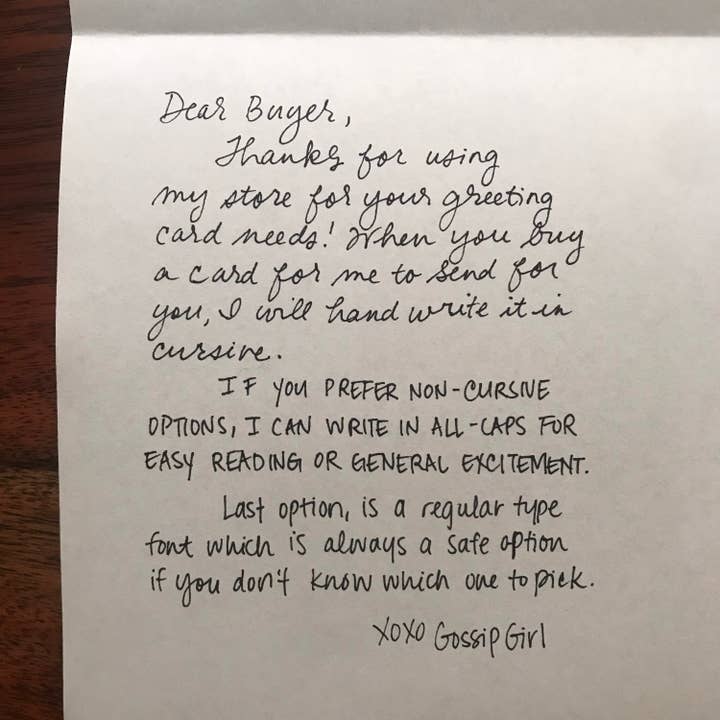 Dear Buyer,
Thanks for using
my store for your greeting
card needs! When you buy
a card for me to send for
you, I will hand write it in
cursive.
IF YOU PREFER NON-CURSIVE
OPTIONS, I CAN WRITE IN ALL-CAPS FOR
EASY READING OR GENERAL EXCITEMENT.
Last option, is a regular type
font which is always a safe option
if you don't know which one to pick.
XOXO Gossip Girl